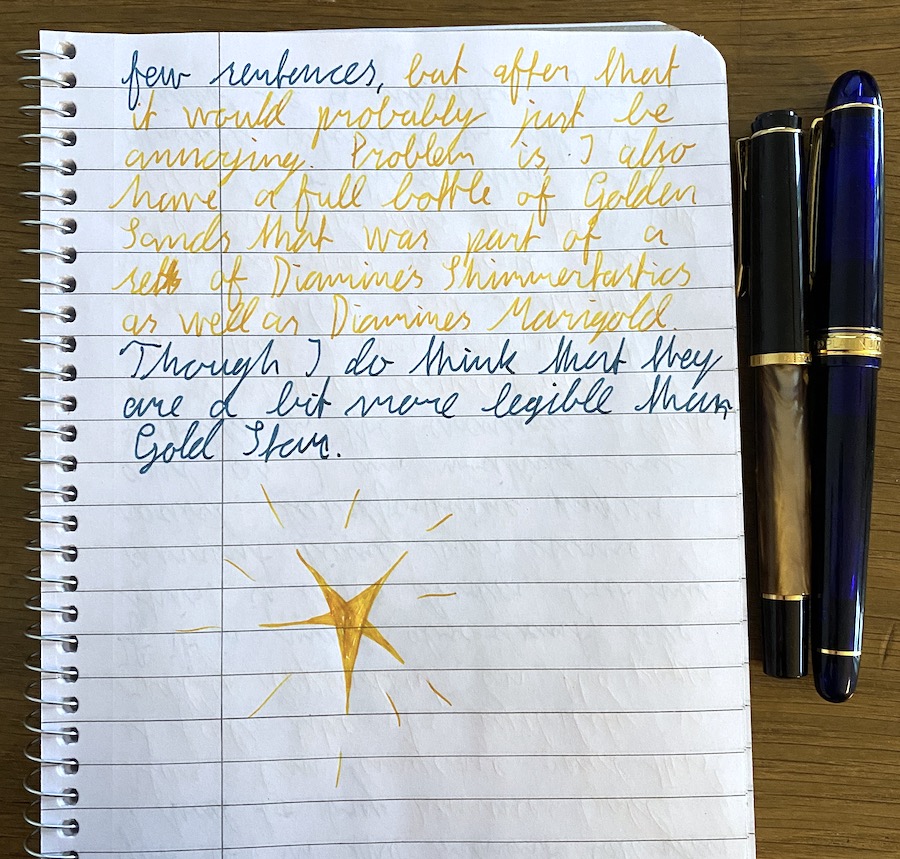 few sentences, but after that
it would probably just be
annoying. Problem is, I also
have a full bottle of Golden
Sands that was part of a
set of Diamine's Shimmertastics
as well as Diamines Marigold.
Though I do think that they
are a bit more legible than
Gold Star.